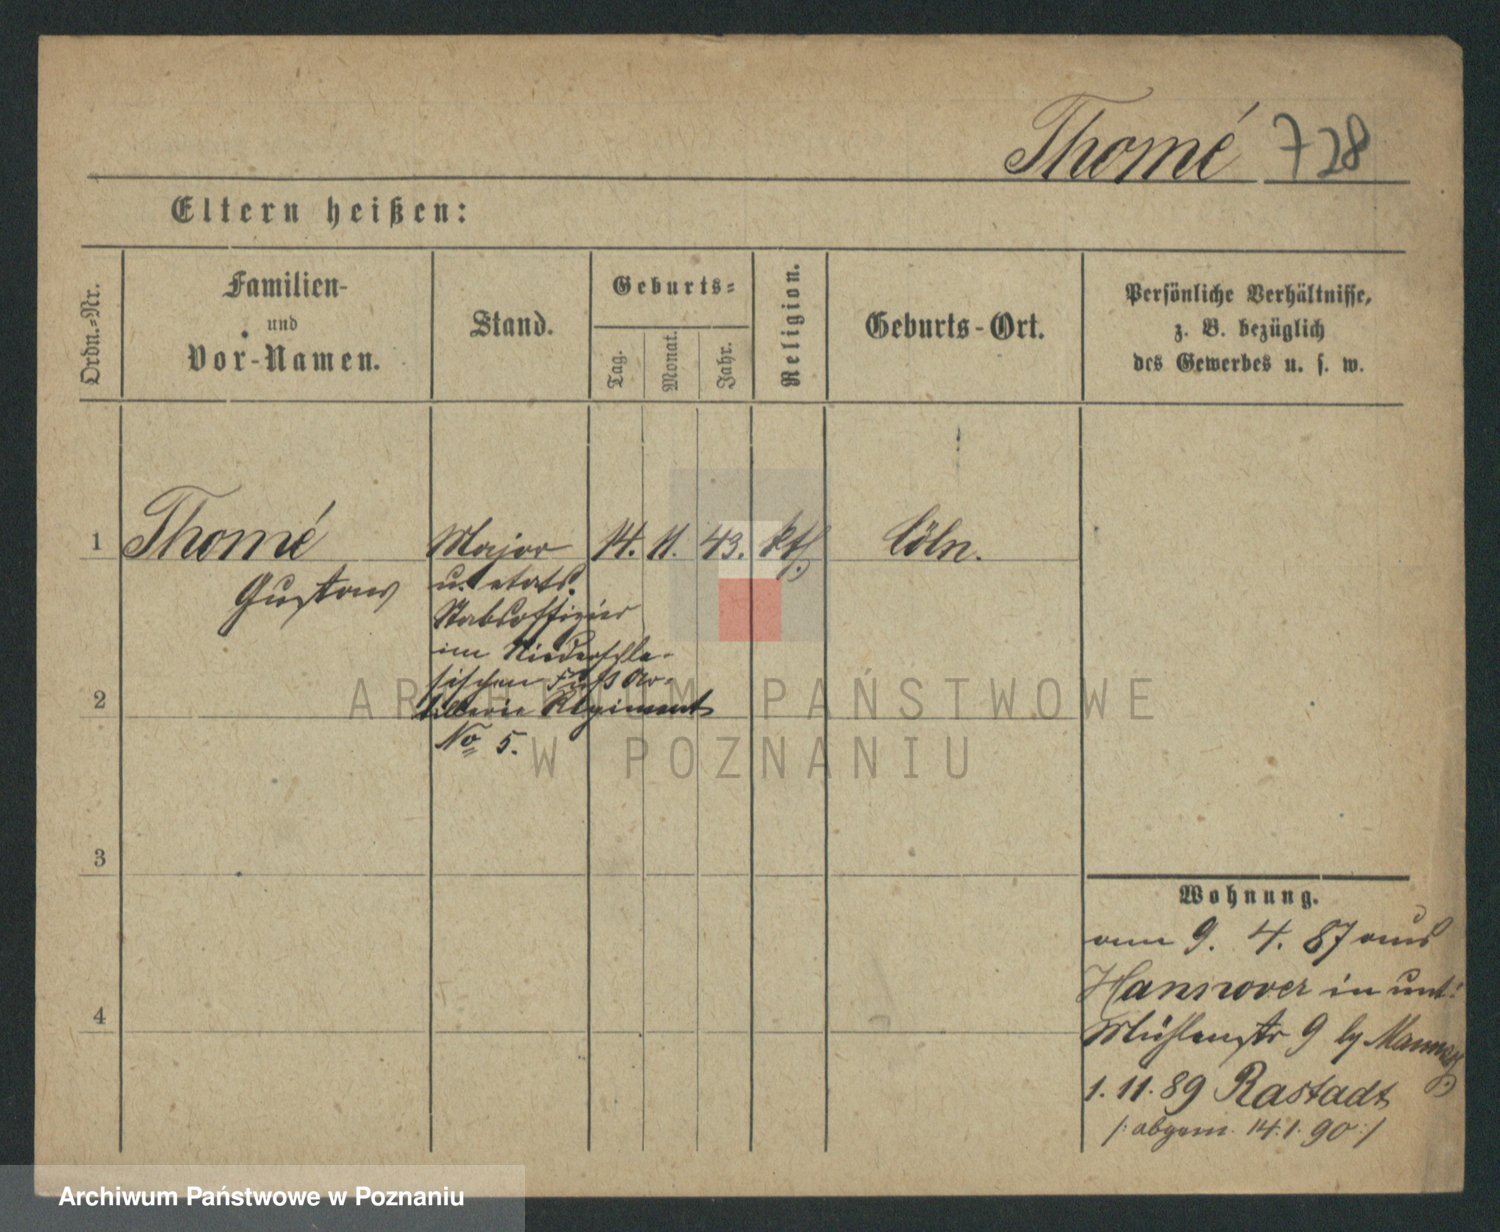 Thomé 728
Eltern heißen:
Ordn.-Nr.
Familien-
und
Vor-Namen.
Stand.
Geburts-
Tag.
Monat.
Jahr.
Religion.
Geburts-Ort.
Persönliche Verhältnisse,
z. B. bezüglich
des Gewerbes u. s. w.
1 Thomé Major 14. 11. 43. kth. Cöln.
Gustav u. etats.
Stabsoffizier
im Niederschle-
sischen Fuß Ar-
2 tillerie Regiment
No 5.
3
4
Wohnung.
vom 9. 4. 87 aus
Hannover in unt:
Mühlenstr 9
1. 11. 89 Rastadt
/: abgem. 14.1.90 :/
ARCHIWUM PAŃSTWOWE
W POZNANIU
Archiwum Państwowe w Poznaniu